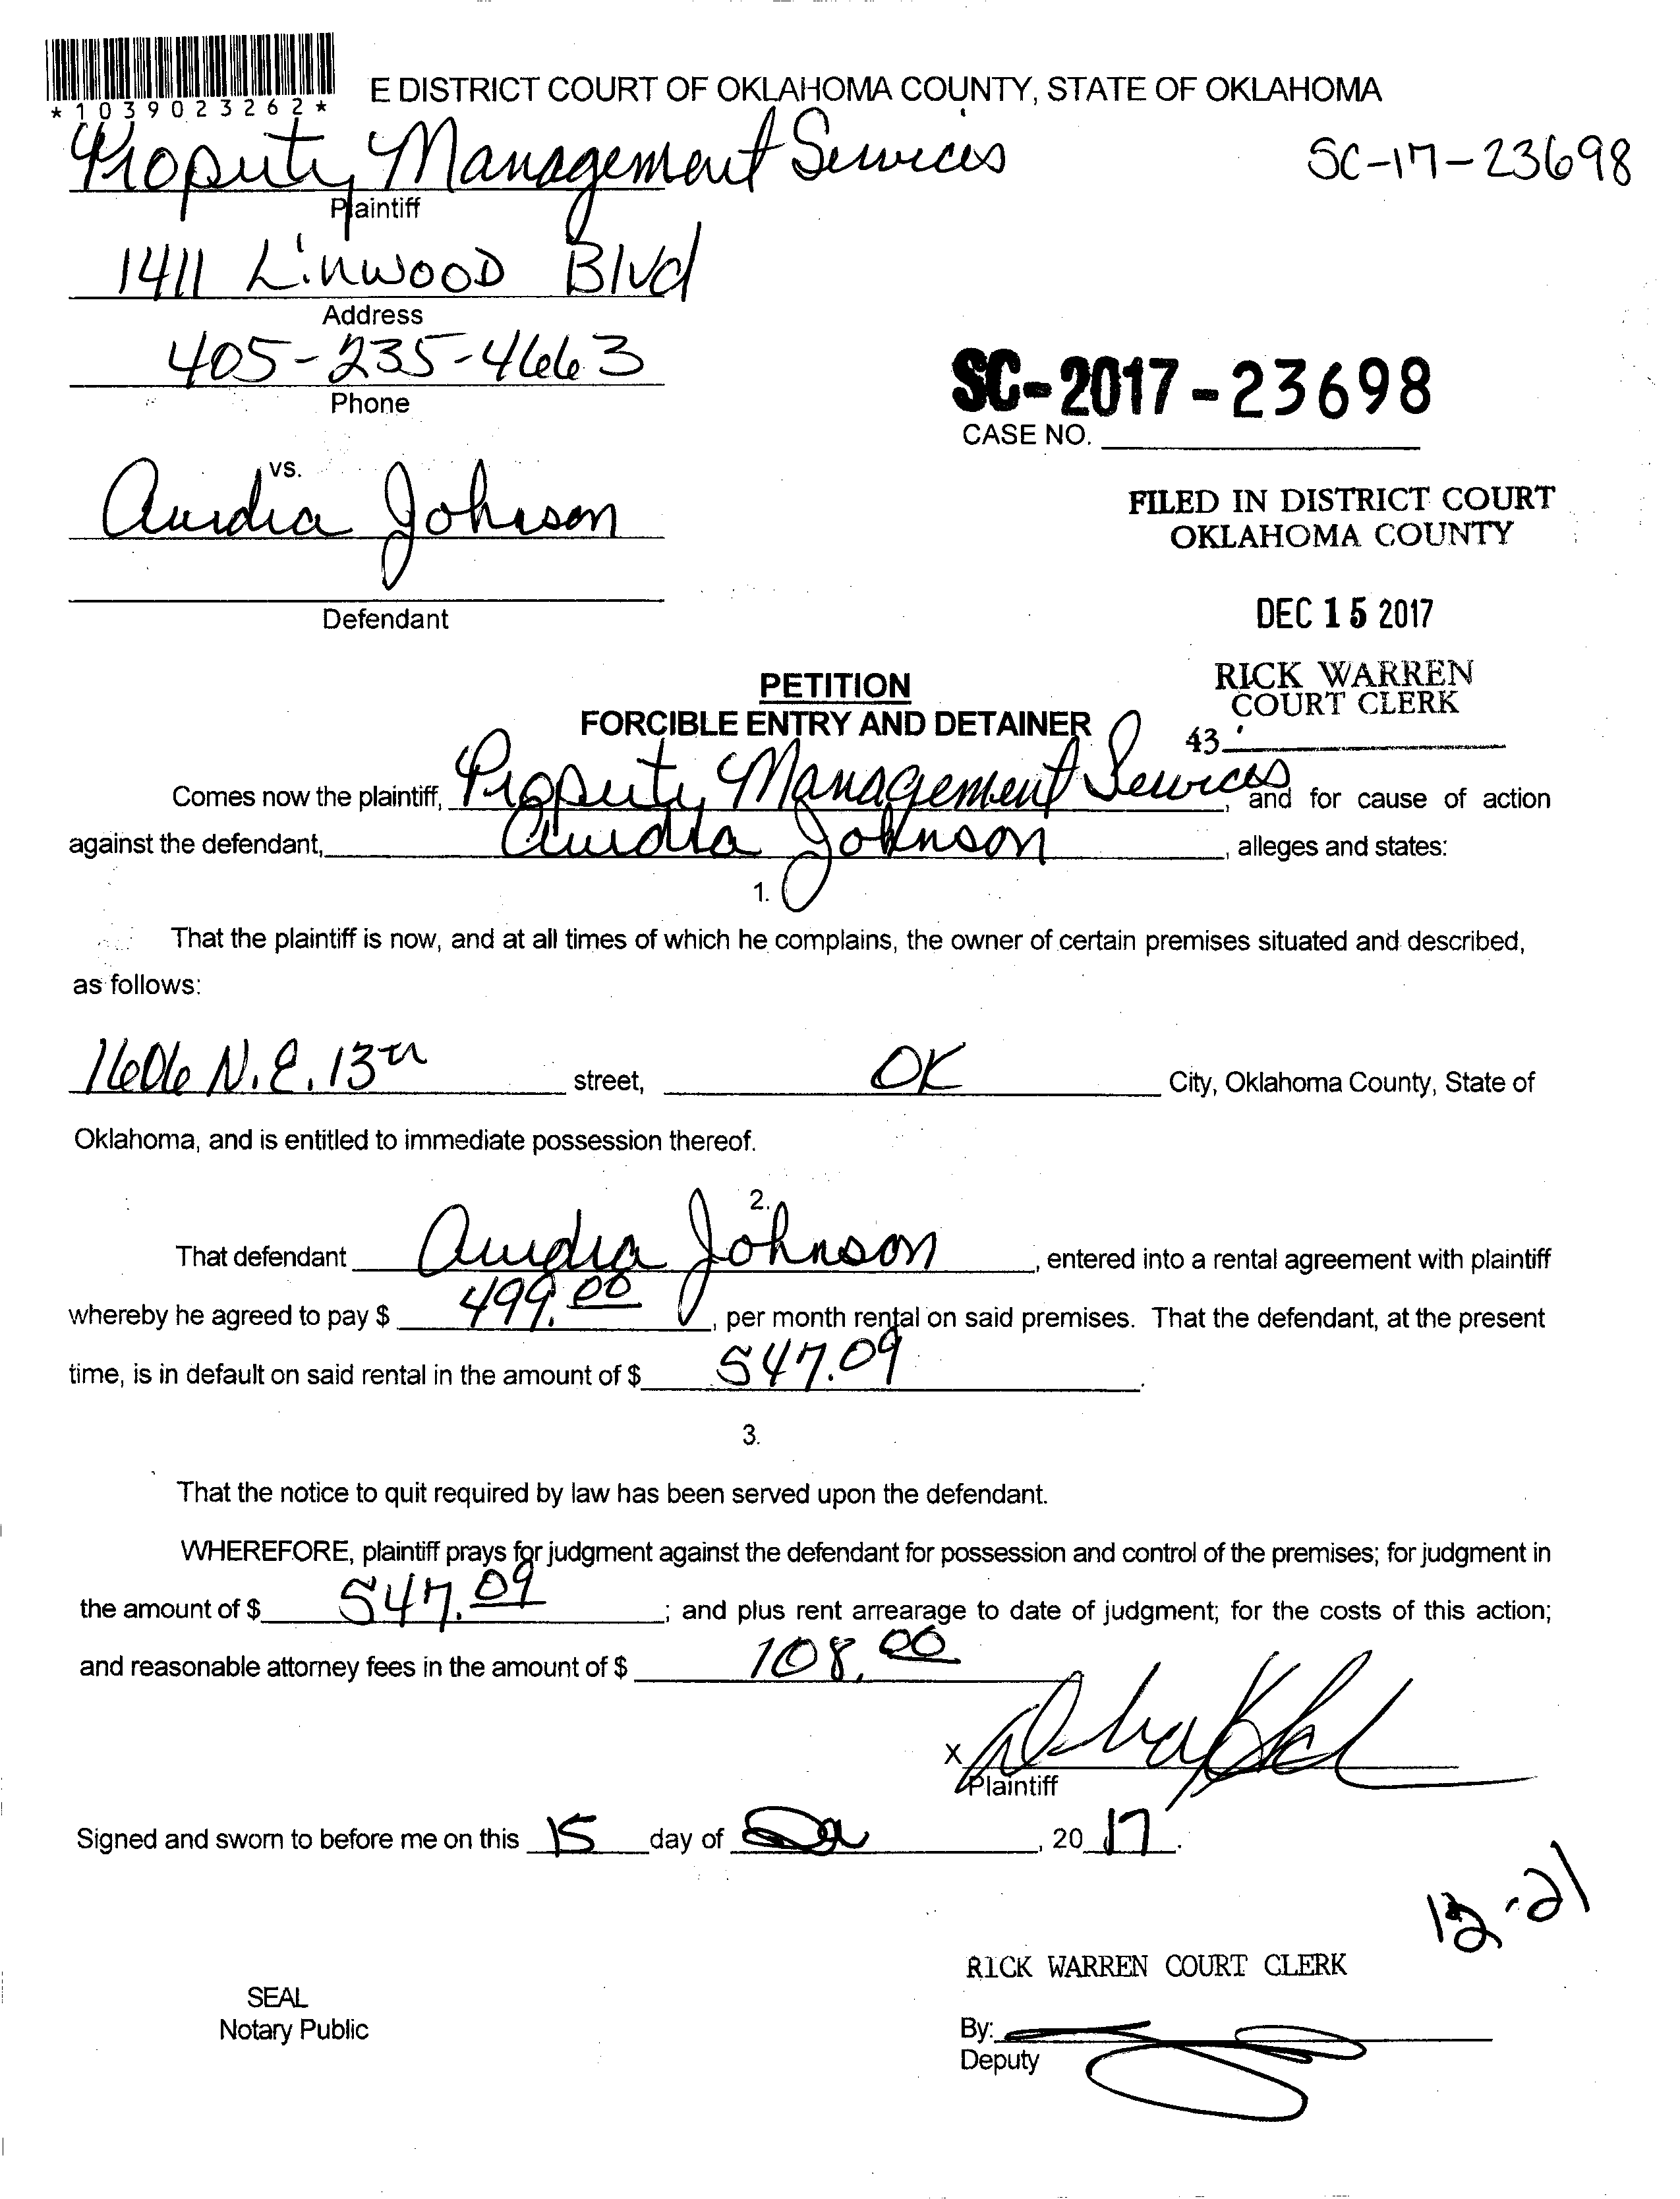 *1039023262*
E DISTRICT COURT OF OKLAHOMA COUNTY, STATE OF OKLAHOMA
Property Management Services
SC-17-23698
Plaintiff
1411 Linwood Blvd
Address
405-235-4663
Phone
SC-2017-23698
CASE NO.
vs.
Johnson
FILED IN DISTRICT COURT
OKLAHOMA COUNTY
Defendant
DEC 15 2017
RICK WARREN
COURT CLERK
43
PETITION
FORCIBLE ENTRY AND DETAINER
Comes now the plaintiff, Property Management Services, and for cause of action
against the defendant, Johnson, alleges and states:
1.
That the plaintiff is now, and at all times of which he complains, the owner of certain premises situated and described,
as follows:
1606 N.E. 13th street, OK City, Oklahoma County, State of
Oklahoma, and is entitled to immediate possession thereof.
2.
That defendant Johnson, entered into a rental agreement with plaintiff
whereby he agreed to pay $ 499.00, per month rental on said premises. That the defendant, at the present
time, is in default on said rental in the amount of $ 547.09.
3.
That the notice to quit required by law has been served upon the defendant.
WHEREFORE, plaintiff prays for judgment against the defendant for possession and control of the premises; for judgment in
the amount of $ 547.09; and plus rent arrearage to date of judgment; for the costs of this action;
and reasonable attorney fees in the amount of $ 108.00
X
Plaintiff
Signed and sworn to before me on this 15 day of , 2017.
12-21
RICK WARREN COURT CLERK
SEAL
Notary Public
By:
Deputy